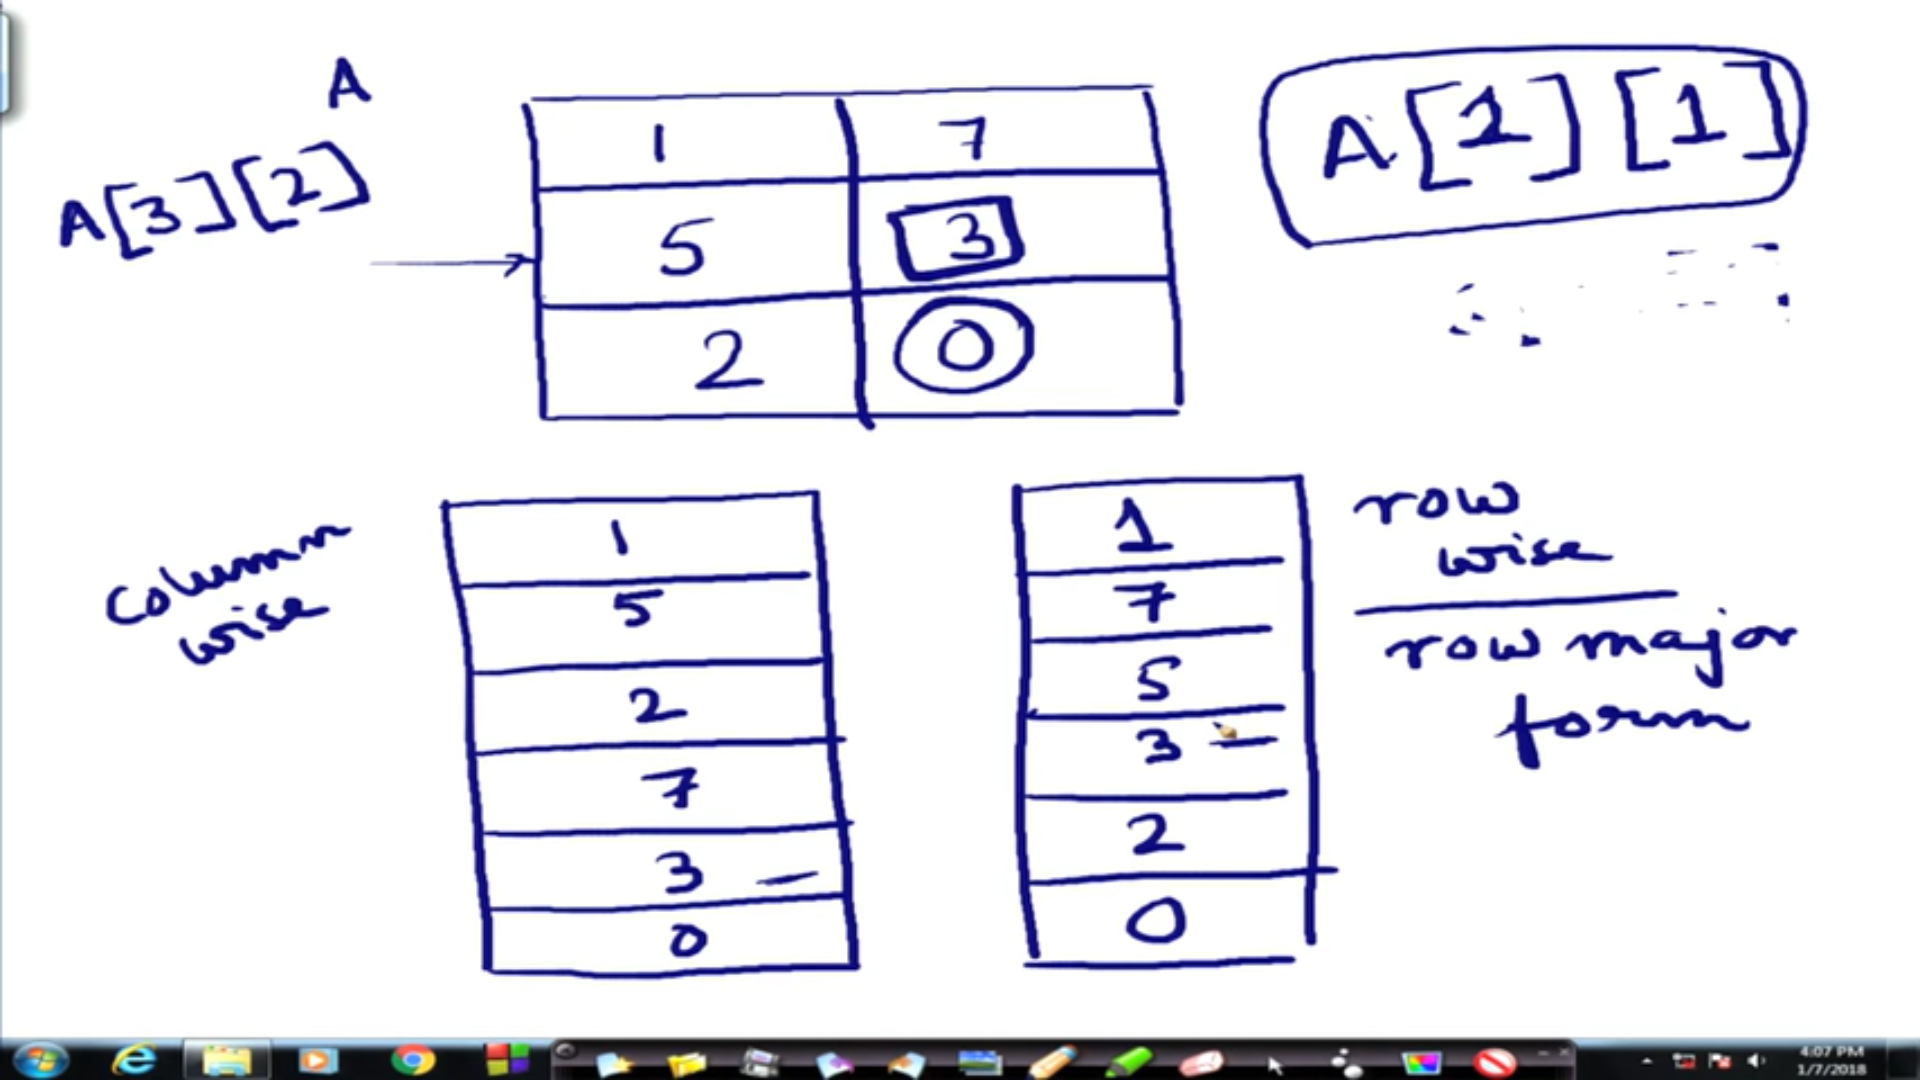 A
A[3][2]
1 7
5 3
2 0
A[1][1]
column
wise
1
5
2
7
3
0
1
7
5
3
2
0
row
wise
row major
form
4:07 PM
1/7/2018